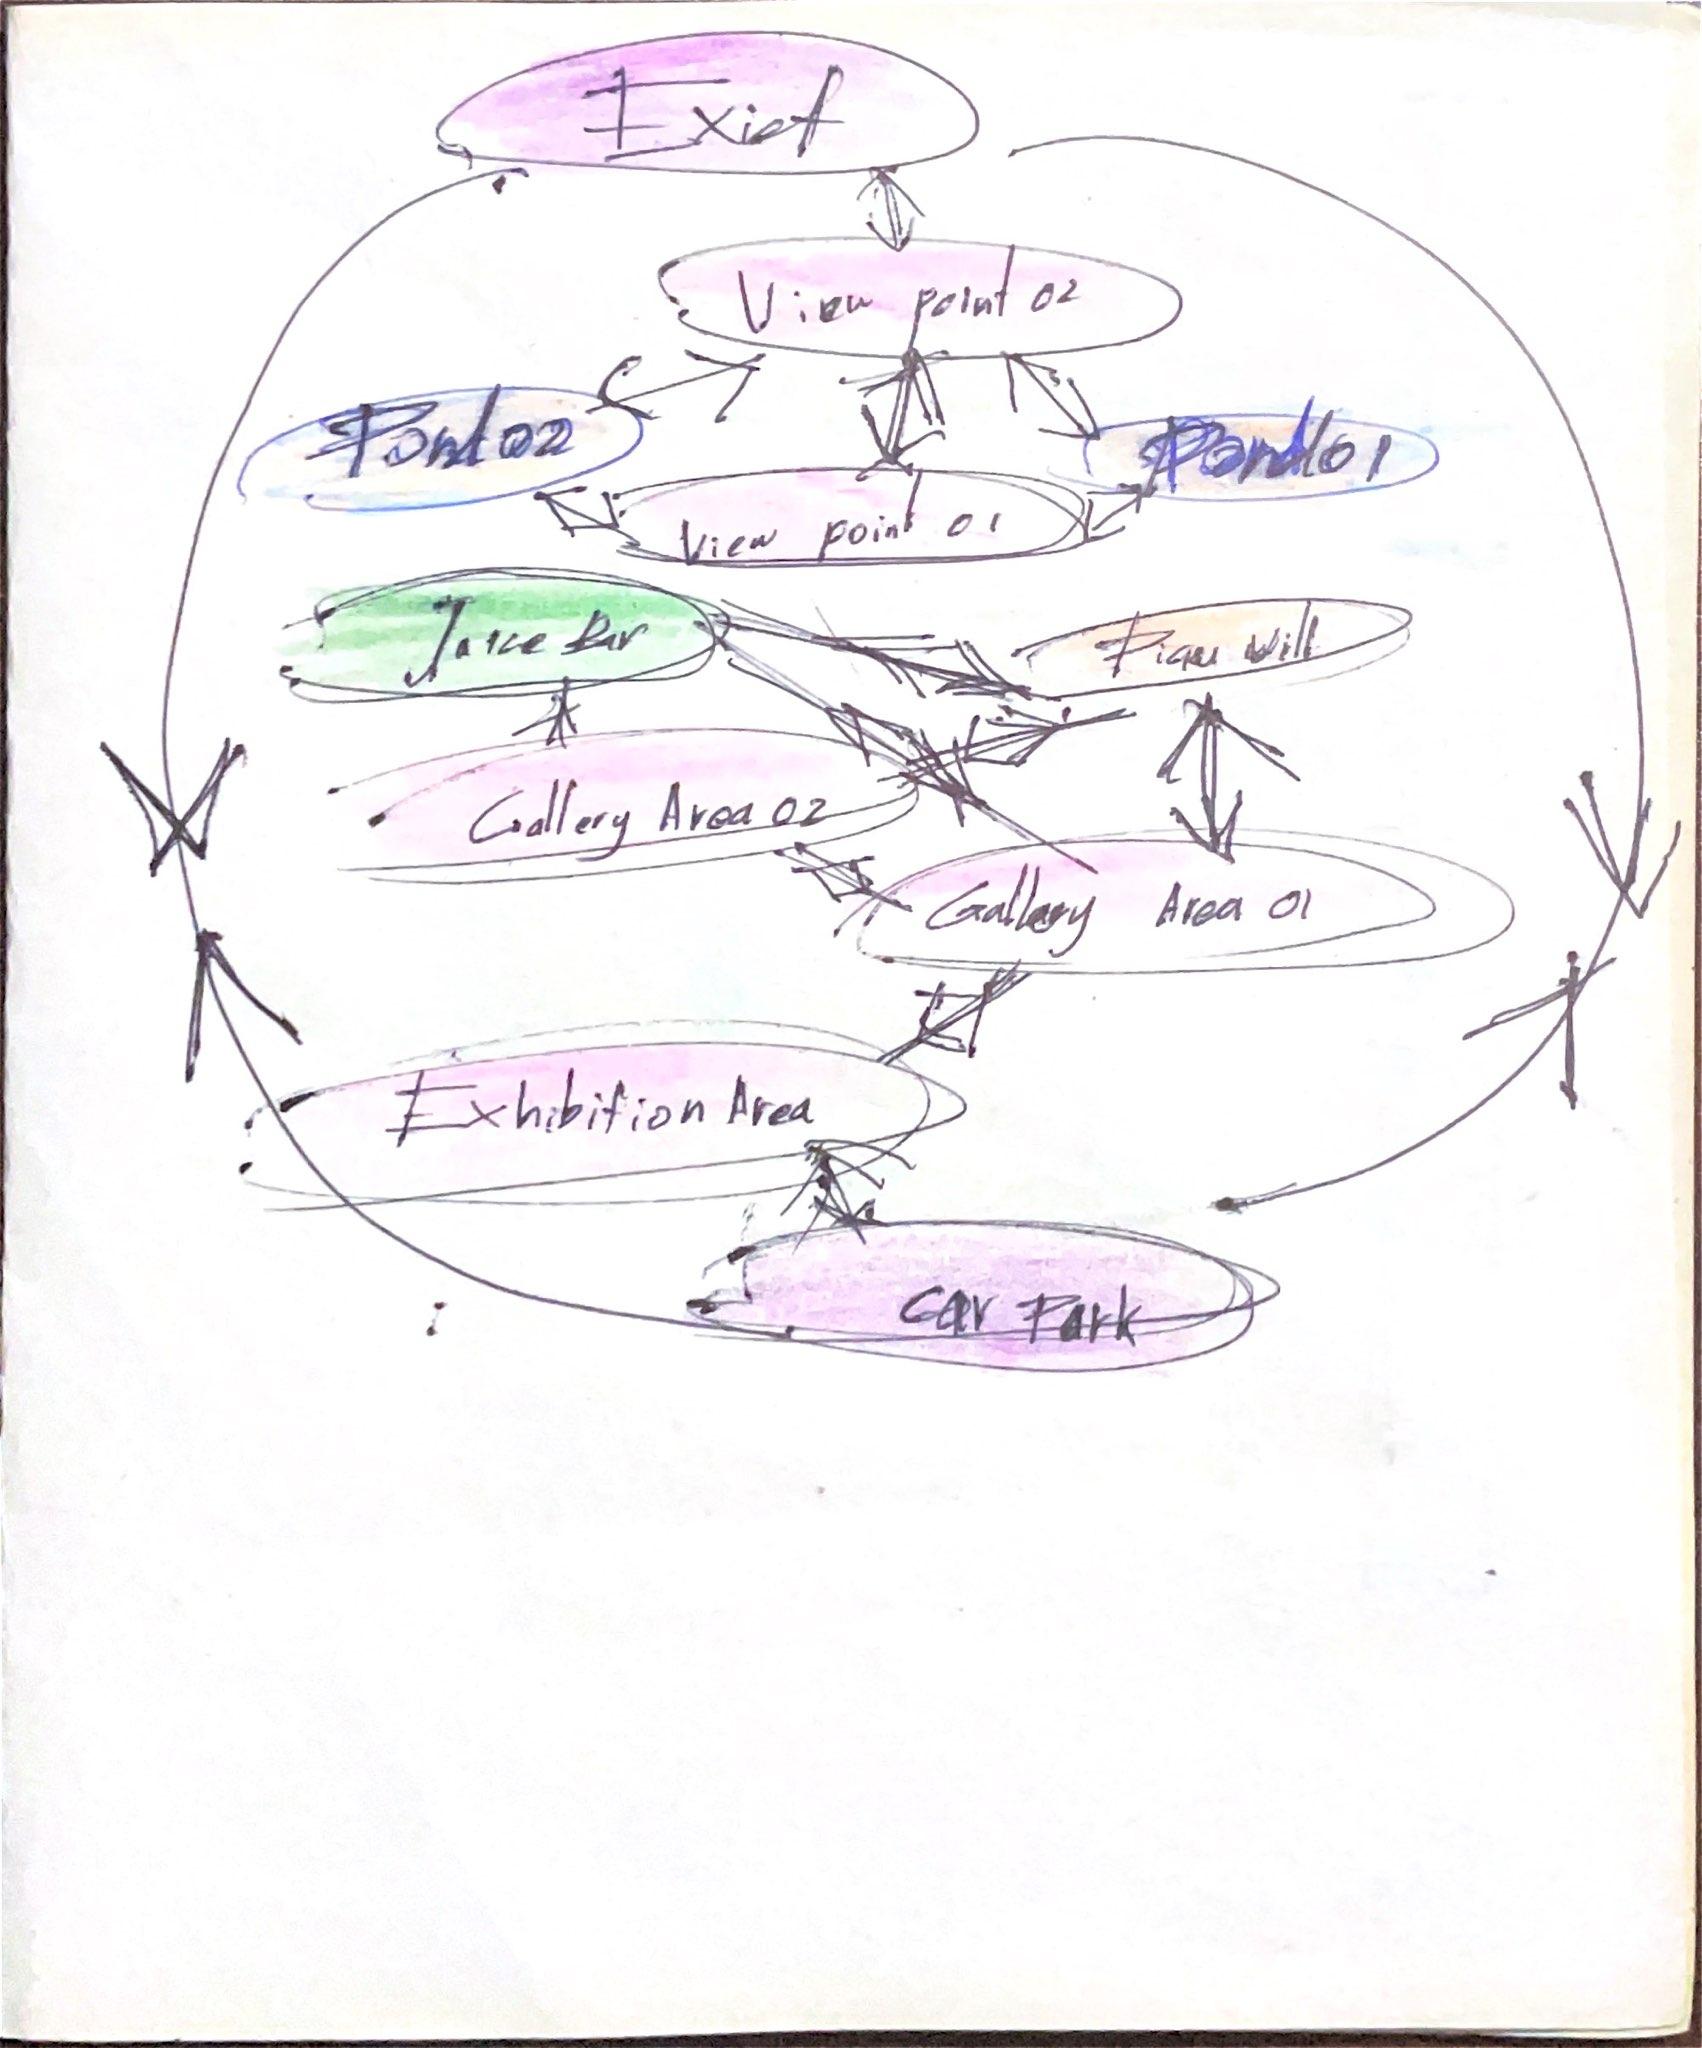 Exist
View point 02
Pond 02
Pond 01
View point 01
Juice Bar
Gallery Area 02
Gallary Area 01
Exhibition Area
Car Park